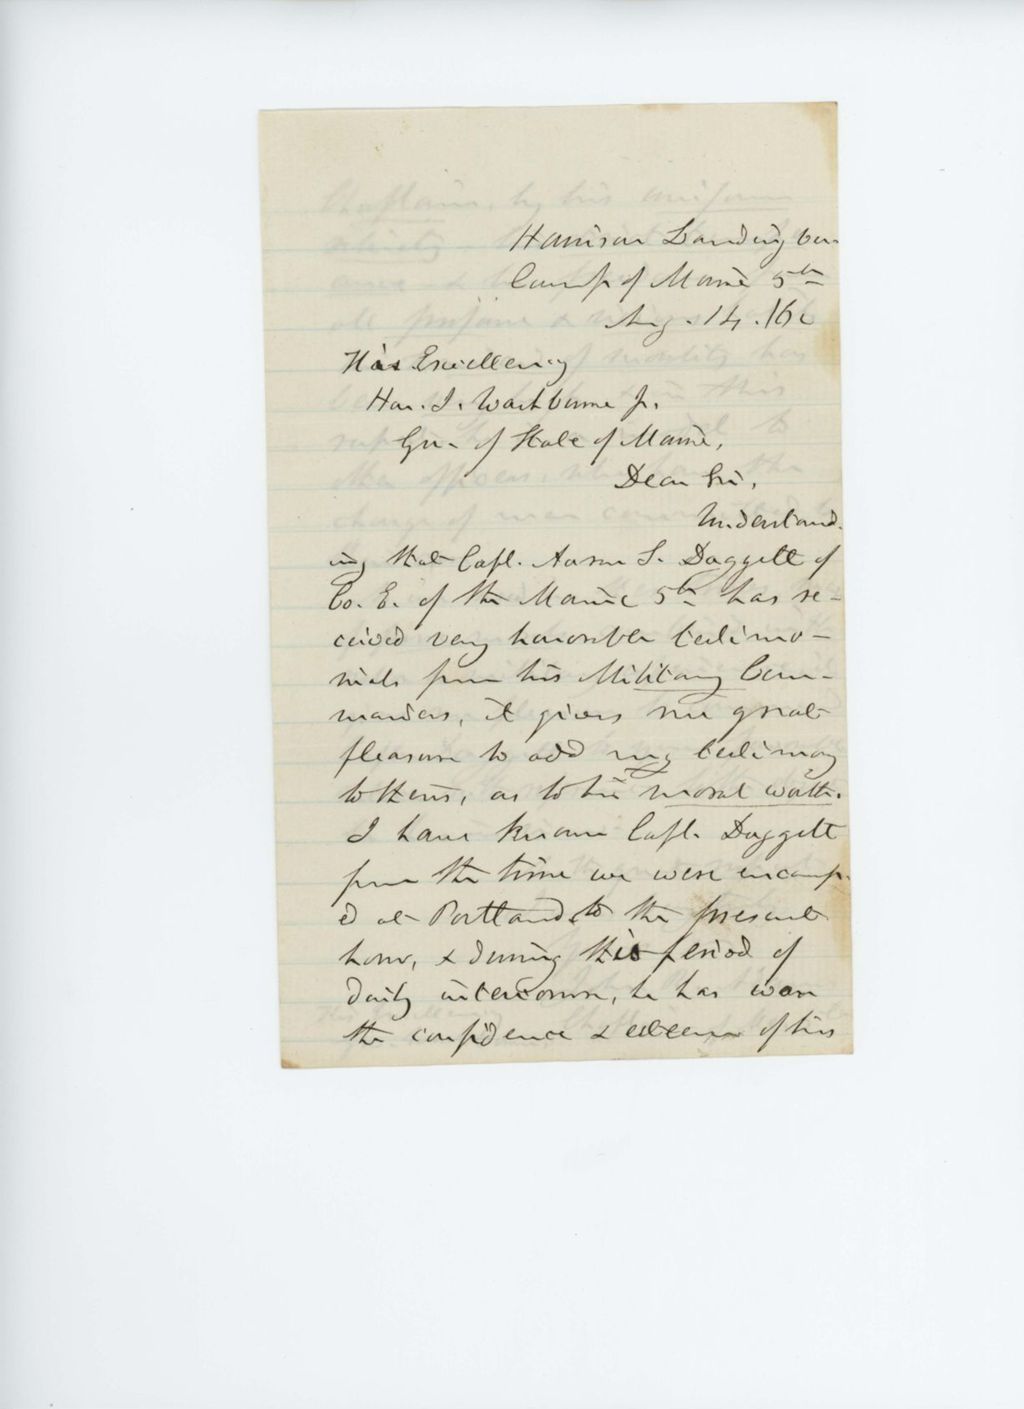 Harrison Landing Va
Camp of Maine 5th
Aug. 14. 186
His Excellency
Hon. I. Washburne Jr.
Gov. of State of Maine,
Dear Sir,
Understand-
ing that Capt. Aaron S. Daggett of
Co. E. of the Maine 5th has re-
ceived very honorable testimo-
nials from his Military Com-
manders, it gives me great
pleasure to add my testimony
to theirs, as to his moral worth.
I have known Capt. Daggett
from the time we were encamp-
ed at Portland, to the present
hour, & during this period of
daily intercourse, he has won
the confidence & esteem of his